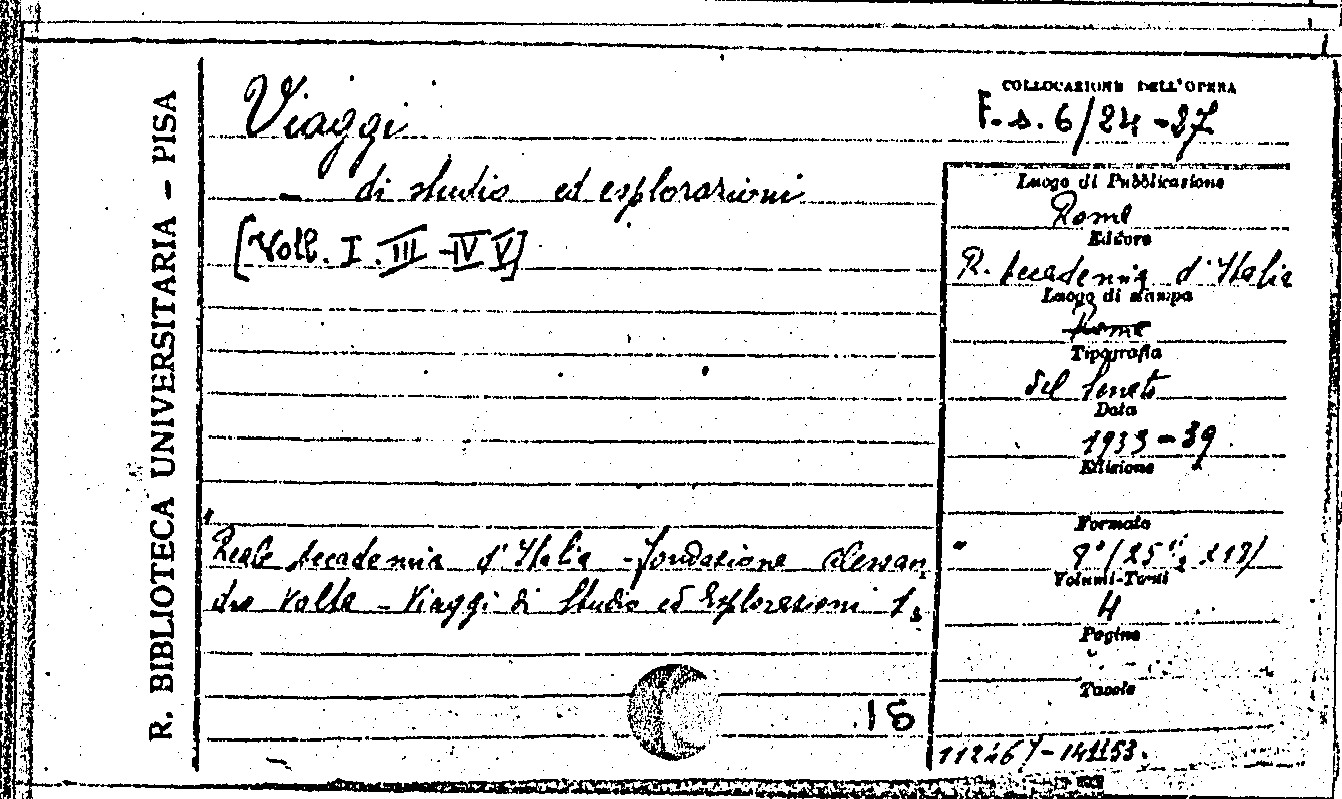 R. BIBLIOTECA UNIVERSITARIA - PISA
Viaggi
- di studio ed esplorazioni
[Voll. I. III - IV V]
"Reale Accademia d'Italia - Fondazione Alessan
dro Volta - Viaggi di Studio ed Esplorazioni
18
COLLOCAZIONE DELL'OPERA
F. s. 6/24-27
Luogo di Pubblicazione
Roma
Editore
R. Accademia d'Italia
Luogo di stampa
Roma
Tipografia
del Senato
Data
1933-39
Edizione
Formato
8°
Volumi-Tomi
4
Pagine
Tavole